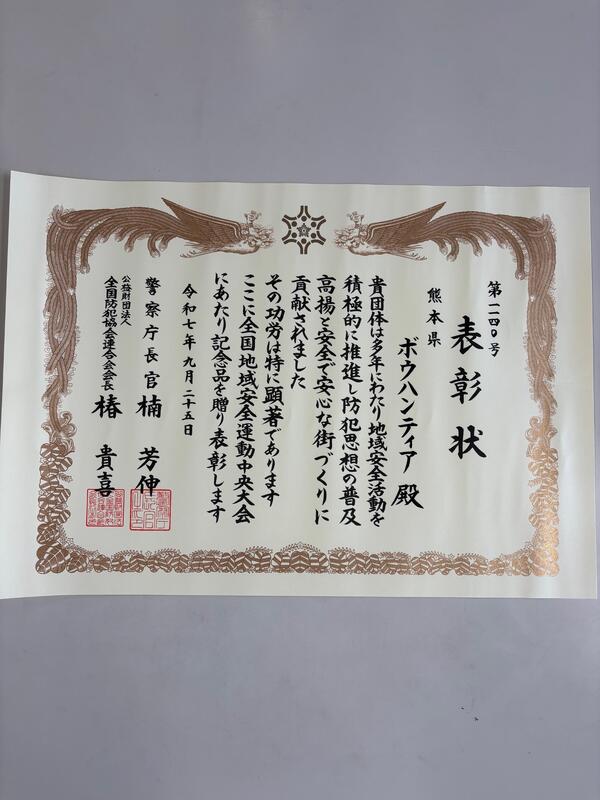 第一一四〇号
表彰状
熊本県
ボウハンティア 殿
貴団体は多年にわたり地域安全活動を
積極的に推進し防犯思想の普及
高揚と安全で安心な街づくりに
貢献されました
その功労は特に顕著であります
ここに全国地域安全運動中央大会
にあたり記念品を贈り表彰します
令和七年九月二十五日
警察庁長官 楠 芳伸
公益財団法人
全国防犯協会連合会会長 椿 貴喜